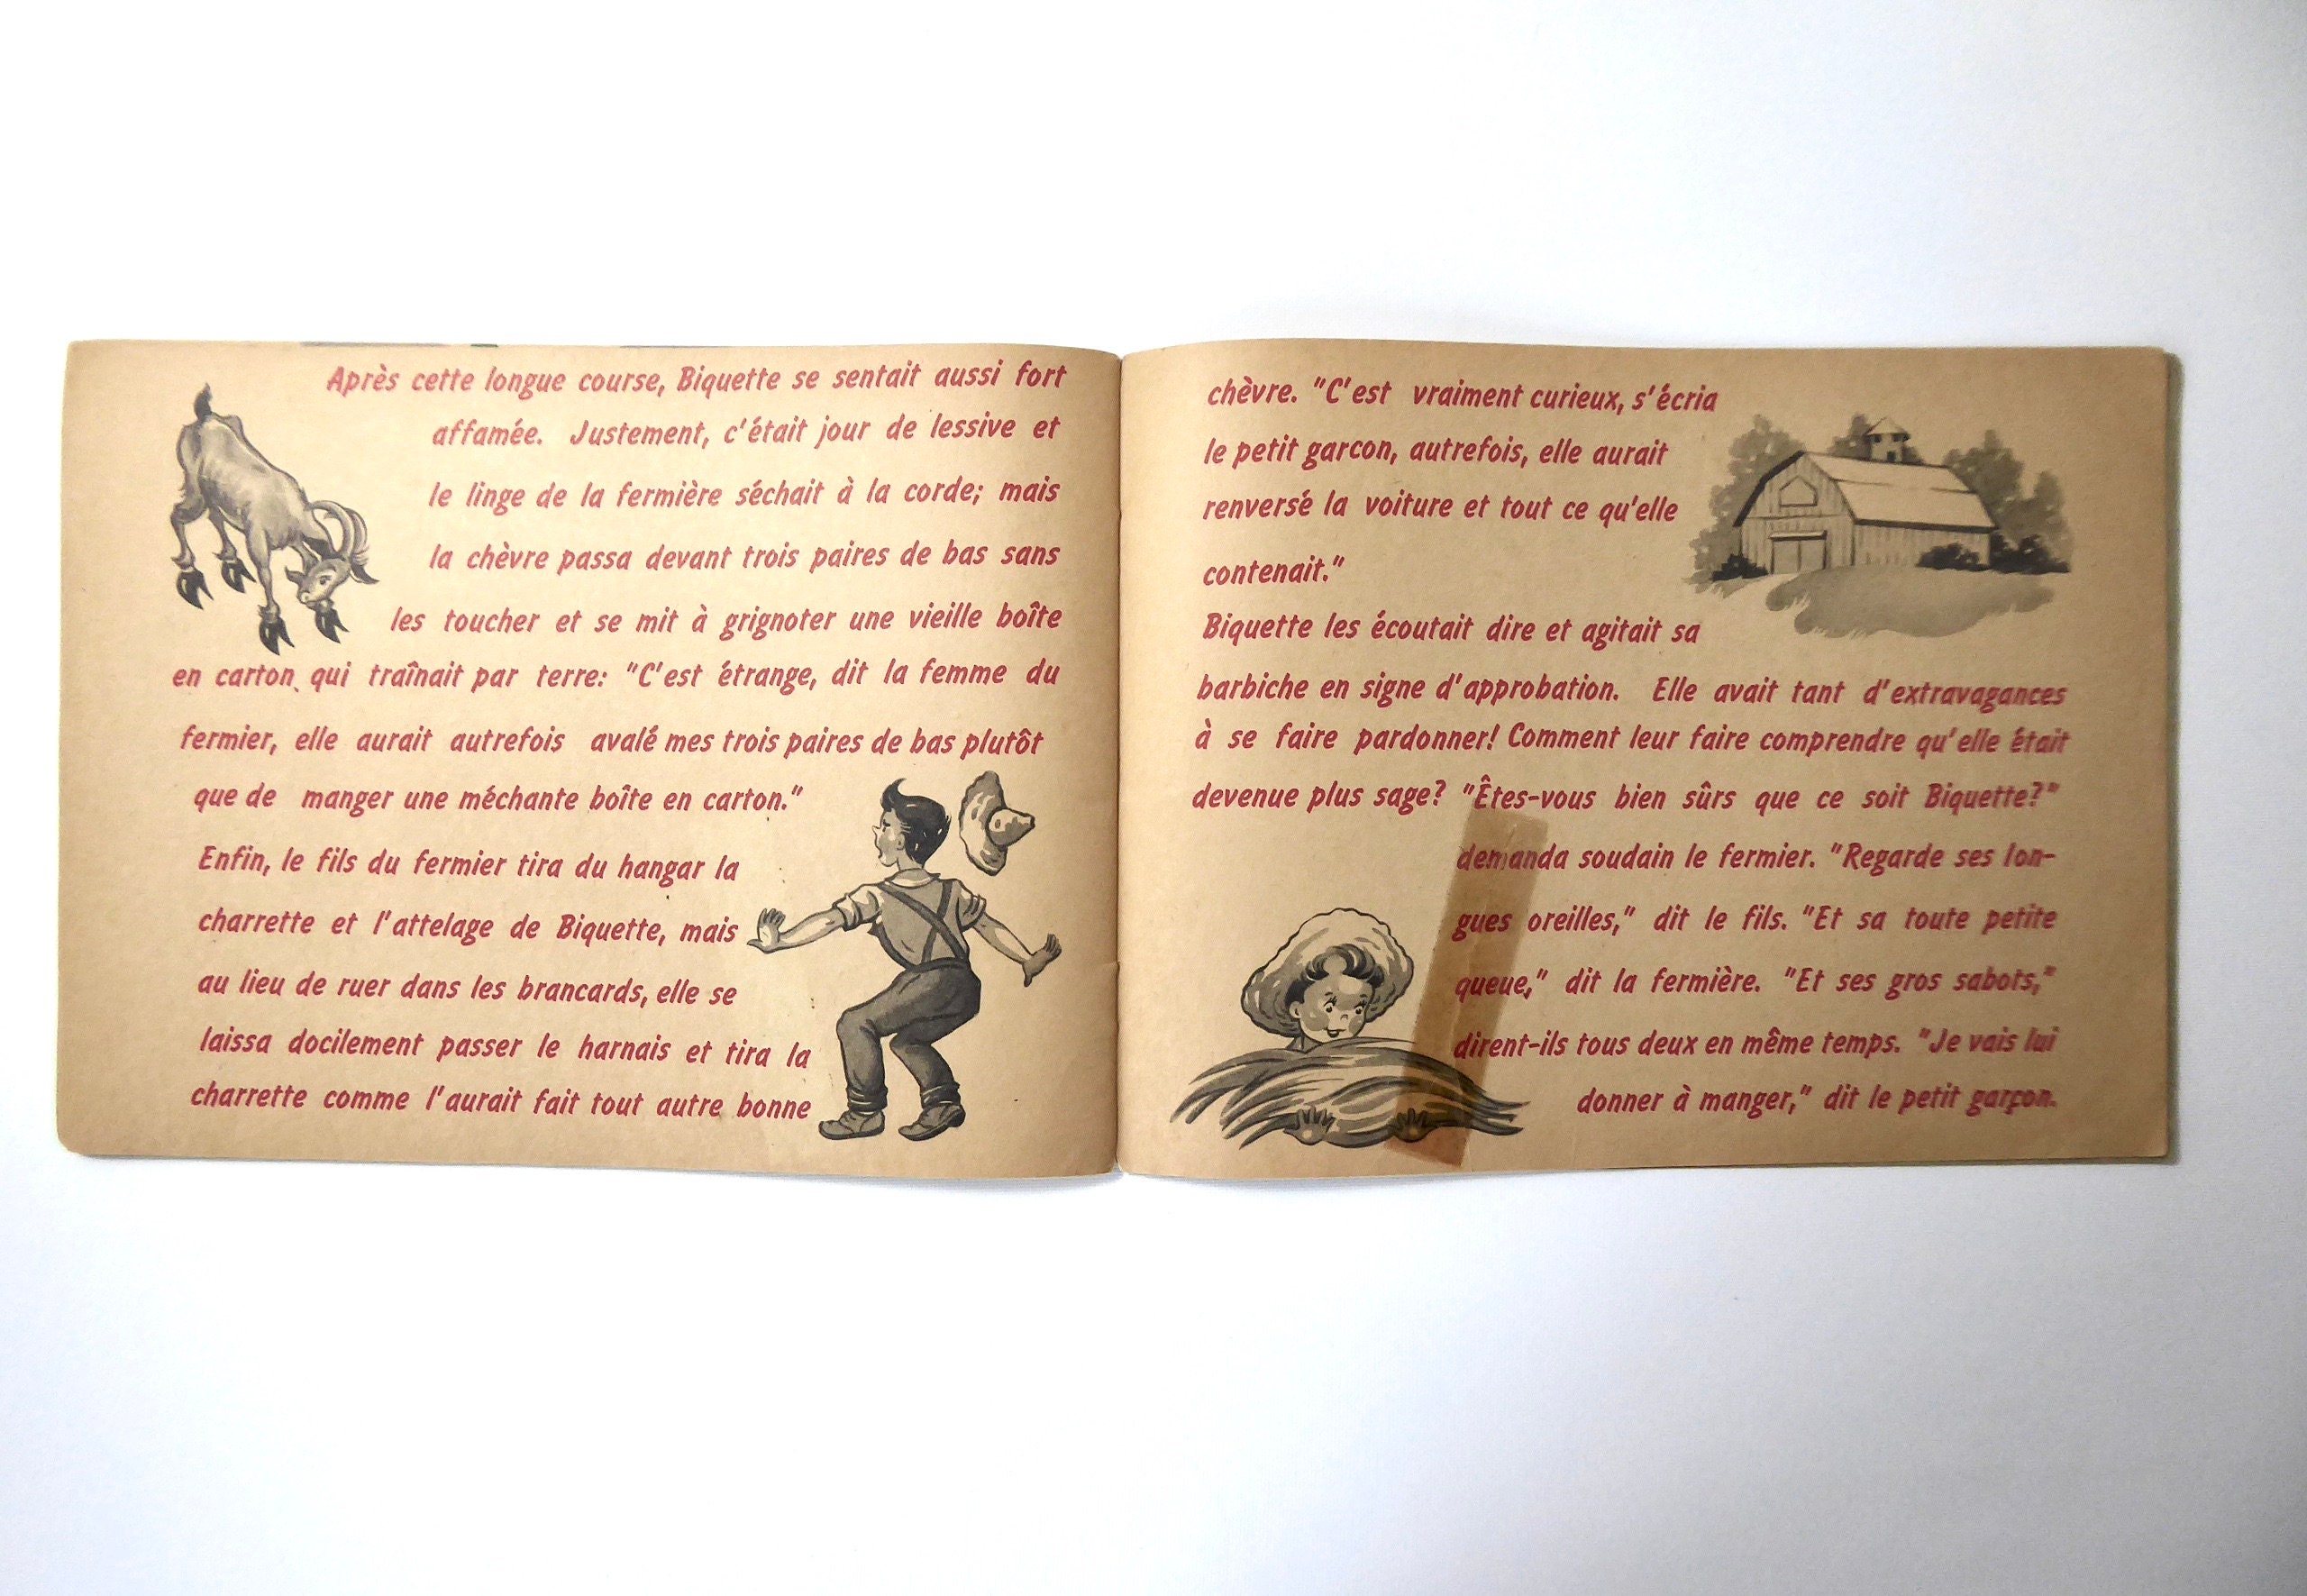 Après cette longue course, Biquette se sentait aussi fort
affamée. Justement, c'était jour de lessive et
le linge de la fermière séchait à la corde; mais
la chèvre passa devant trois paires de bas sans
les toucher et se mit à grignoter une vieille boîte
en carton qui traînait par terre: "C'est étrange, dit la femme du
fermier, elle aurait autrefois avalé mes trois paires de bas plutôt
que de manger une méchante boîte en carton."
Enfin, le fils du fermier tira du hangar la
charrette et l'attelage de Biquette, mais
au lieu de ruer dans les brancards, elle se
laissa docilement passer le harnais et tira la
charrette comme l'aurait fait tout autre bonne
chèvre. "C'est vraiment curieux, s'écria
le petit garcon, autrefois, elle aurait
renversé la voiture et tout ce qu'elle
contenait."
Biquette les écoutait dire et agitait sa
barbiche en signe d'approbation. Elle avait tant d'extravagances
à se faire pardonner! Comment leur faire comprendre qu'elle était
devenue plus sage? "Êtes-vous bien sûrs que ce soit Biquette?"
demanda soudain le fermier. "Regarde ses lon-
gues oreilles," dit le fils. "Et sa toute petite
queue," dit la fermière. "Et ses gros sabots,"
dirent-ils tous deux en même temps. "Je vais lui
donner à manger," dit le petit garçon.